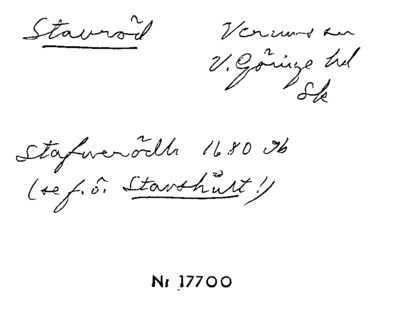 Stavröd
Verums sn
V. Göinge hd
Sk
Stafwerödh 1680 Jb
(se f. ö. Stavshult!)
Nr 17700